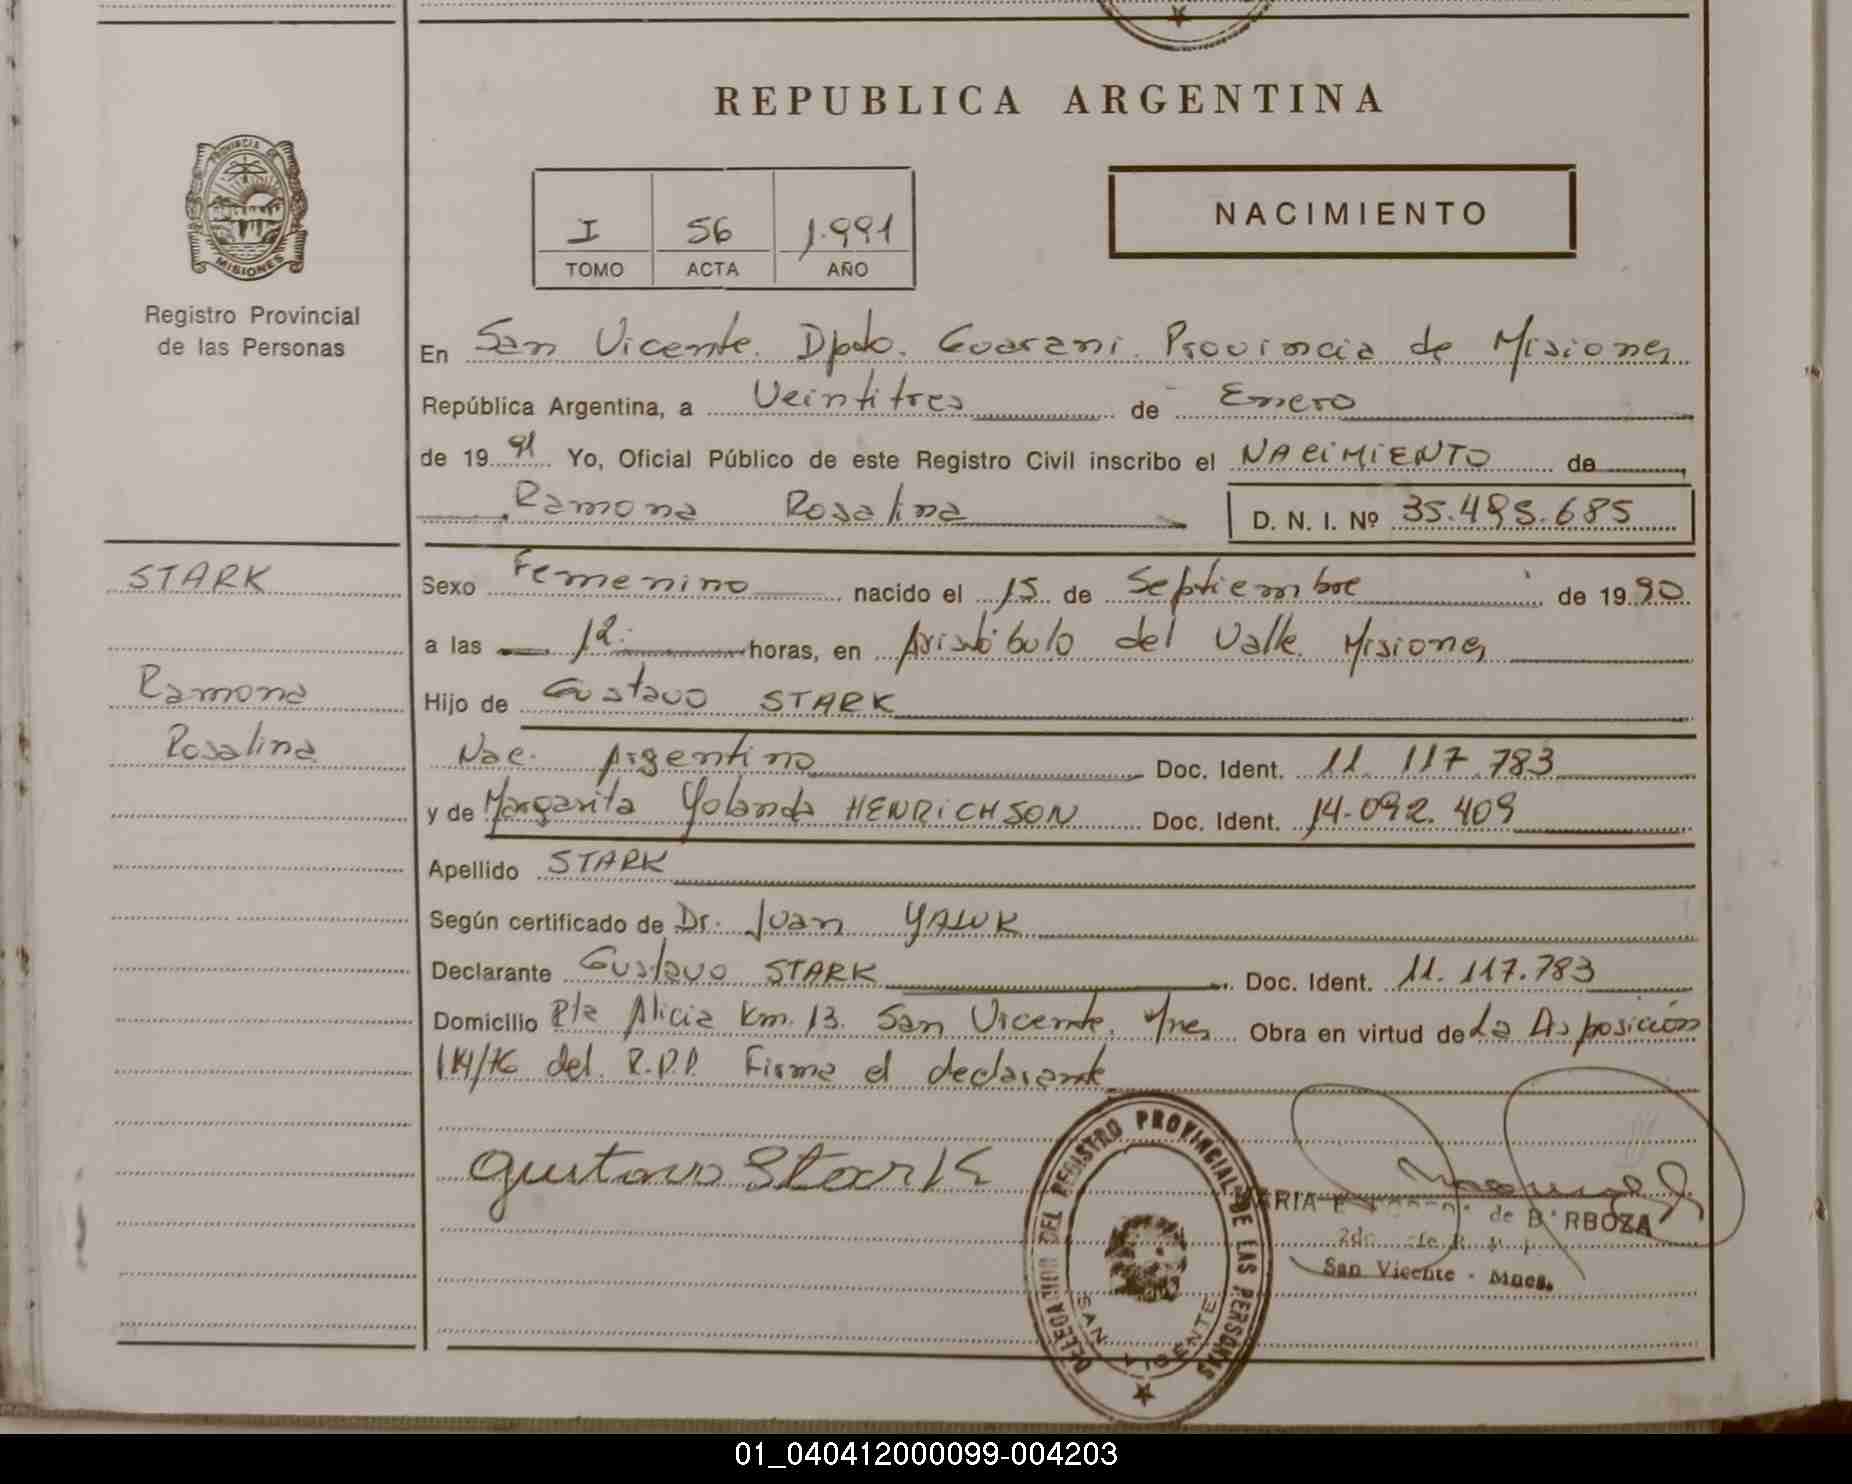 REPUBLICA ARGENTINA
PROVINCIA DE
MISIONES
Registro Provincial
de las Personas
I 56 1.991
TOMO ACTA AÑO
NACIMIENTO
En San Vicente. Dpto. Guarani. Provincia de Misiones
República Argentina, a Veintitres de Enero
de 19 91 Yo, Oficial Público de este Registro Civil inscribo el NACIMIENTO de
Ramona Rosalina D. N. I. Nº 35.495.685
STARK
Ramona
Rosalina
Sexo Femenino nacido el 15 de Septiembre de 19 90
a las 12 horas, en Aristóbulo del Valle. Misiones
Hijo de Gustavo STARK
Nac. Argentino Doc. Ident. 11. 117. 783
y de Margarita Yolanda HENRICHSON Doc. Ident. 14.092.409
Apellido STARK
Según certificado de Dr. Juan
Declarante Gustavo STARK Doc. Ident. 11.117.783
Domicilio Pla Alicia Km. 13. San Vicente. Mnes. Obra en virtud de La Disposición
del. R.P.P. Firma el declarante
Gustavo Stark
DELEGACION DEL REGISTRO PROVINCIAL DE LAS PERSONAS
SAN VICENTE
de BARBOZA
San Vicente - Mnes.
01_040412000099-004203